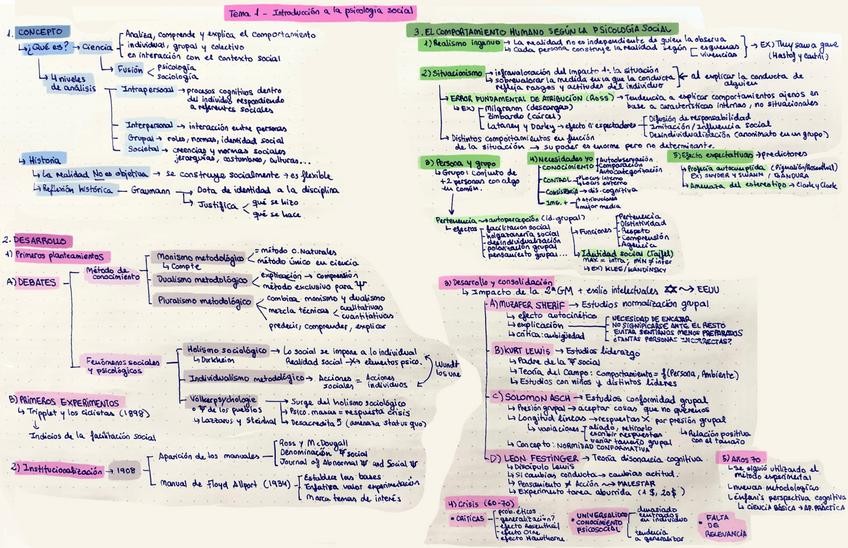 Tema 1 - Introducción a la psicología social
1. CONCEPTO
↳ ¿Qué es? → Ciencia
Analiza, comprende y explica el comportamiento
individual, grupal y colectivo
en interacción con el contexto social
↳ Fusión
psicología
sociología
↳ 4 niveles de análisis
Intrapersonal → procesos cognitivos dentro
del individuo respondiendo
a referentes sociales
Interpersonal → interacción entre personas
Grupal → roles, normas, identidad social
Societal → creencias y normas sociales
jerarquías, costumbres, culturas...
↳ Historia
↳ La realidad No es objetiva → se construye socialmente → es flexible
↳ Reflexión histórica → Graumann
Dota de identidad a la disciplina
Justifica
qué se hizo
qué se hace
2. DESARROLLO
1) Primeros planteamientos
A) DEBATES
Método de conocimiento
Monismo metodológico
↳ Comte
método C. Naturales
método único en ciencia
Dualismo metodológico
explicación → comprensión
método exclusivo para Ψ
Pluralismo metodológico
combina monismo y dualismo
mezcla técnicas
cualitativas
cuantitativas
predecir, comprender, explicar
Fenómenos sociales y psicológicos
Holismo sociológico
↳ Durkheim
Lo social se impone a lo individual
Realidad social -X→ elementos psico.
Individualismo metodológico
Acciones sociales = Acciones individuos
Wundt los une
Völkerpsychologie
Ψ de los pueblos
↳ Lazarus y Steinthal
Surge del holismo sociológico
Psico. masas = respuesta crisis
Desacredita S (amenaza status quo)
B) PRIMEROS EXPERIMENTOS
↳ Tripplet y los ciclistas (1898)
Indicios de la facilitación social
2) Institucionalización → 1908
Aparición de los manuales
Ross y McDougall
Denominación Ψ social
Journal of Abnormal Ψ and Social Ψ
manual de Floyd Allport (1934)
Establece las bases
Enfatiza valor experimentación
Marca temas de interés
3. EL COMPORTAMIENTO HUMANO SEGÚN LA PSICOLOGÍA SOCIAL
1) Realismo ingenuo
La realidad no es independiente de quien la observa
Cada persona construye la realidad según
esquemas
vivencias
→ EX) They saw a game
(Hastorf y Cantril)
2) Situacionismo
infravaloración del impacto de la situación
sobrevalorar la medida en la que la conducta
refleja rasgos y actitudes del individuo
al explicar la conducta de
alguien
↳ ERROR FUNDAMENTAL DE ATRIBUCIÓN (ROSS) → Tendencia a explicar comportamientos ajenos en
base a características internas, no situacionales
↳ EX)
Milgram (descargas)
Zimbardo (cárcel)
Latané y Darley → efecto nº espectadores
Difusión de responsabilidad
Imitación / Influencia social
Desindividualización (anonimato en un grupo)
↳ Distintos comportamientos en función
de la situación → su poder es enorme pero no determinante.
3) Persona y grupo
↳ Grupo: conjunto de
+2 personas con algo
en común.
4) Necesidades yo
CONOCIMIENTO
Autoobservación
Comparación
Autocategorización
CONTROL
Locus interno
Locus externo
CONSISTENCIA → dis. cognitiva
Img. +
atribuciones
mejor media
5) Efecto expectativas → predictores
↳ Profecía autocumplida (Pigmalión/Rosenthal)
EX) SNYDER Y SWANN / BANDURA
↳ Amenaza del estereotipo → Clark y Clark
Pertenencia → autopercepción (id. grupal)
↳ efectos
facilitación social
holgazanería social
desindividualización
polarización grupal
pensamiento grupal...
↳ Funciones
Pertenencia
Distintividad
Respeto
Comprensión
Agencia
↳ Identidad social (Tajfel)
↳ EX) KLEE/KANDINSKY
3) Desarrollo y consolidación
↳ Impacto de la 2ª GM + exilio intelectuales ✡ → EEUU
A) MUZAFER SHERIF → Estudios normalización grupal
↳ efecto autocinético
↳ explicación
NECESIDAD DE ENCAJAR
NO SIGNIFICARSE ANTE EL RESTO
EVITAR SENTIRNOS MENOS PREPARADOS
¿TANTAS PERSONAS INCORRECTAS?
↳ crítica: ambigüedad
B) KURT LEWIS → Estudios liderazgo
↳ Padre de la Ψ social
↳ Teoría del Campo: Comportamiento = f(Persona, Ambiente)
↳ Estudios con niños y distintos líderes
C) SOLOMON ASCH → Estudios conformidad grupal
↳ Presión grupal → aceptar cosas que no queremos
↳ Longitud líneas → respuestas X por presión grupal
↳ variaciones
aliado, retirarlo
escribir respuestas
variar tamaño grupal
Relación positiva
con el tamaño
↳ Concepto: NORMATIVIDAD CONFORMATIVA
D) LEON FESTINGER → Teoría disonancia cognitiva
↳ Discípulo Lewis
↳ Si cambias conducta → cambias actitud.
↳ Pensamiento ≠ Acción → MALESTAR
↳ Experimento tarea aburrida (1$, 20$)
4) Crisis (60-70)
• CRÍTICAS
prob. éticos
generalización?
efecto Rosenthal
efecto Orne
efecto Hawthorne
• UNIVERSALIDAD CONOCIMIENTO PSICOSOCIAL
demasiado
centrados
en individuo
tendencia
a generalizar
• FALTA DE RELEVANCIA
5) Años 70
↳ Se siguió utilizando el
método experimental
↳ nuevas metodologías
↳ énfasis perspectiva cognitiva
↳ CIENCIA BÁSICA → AP. PRÁCTICA